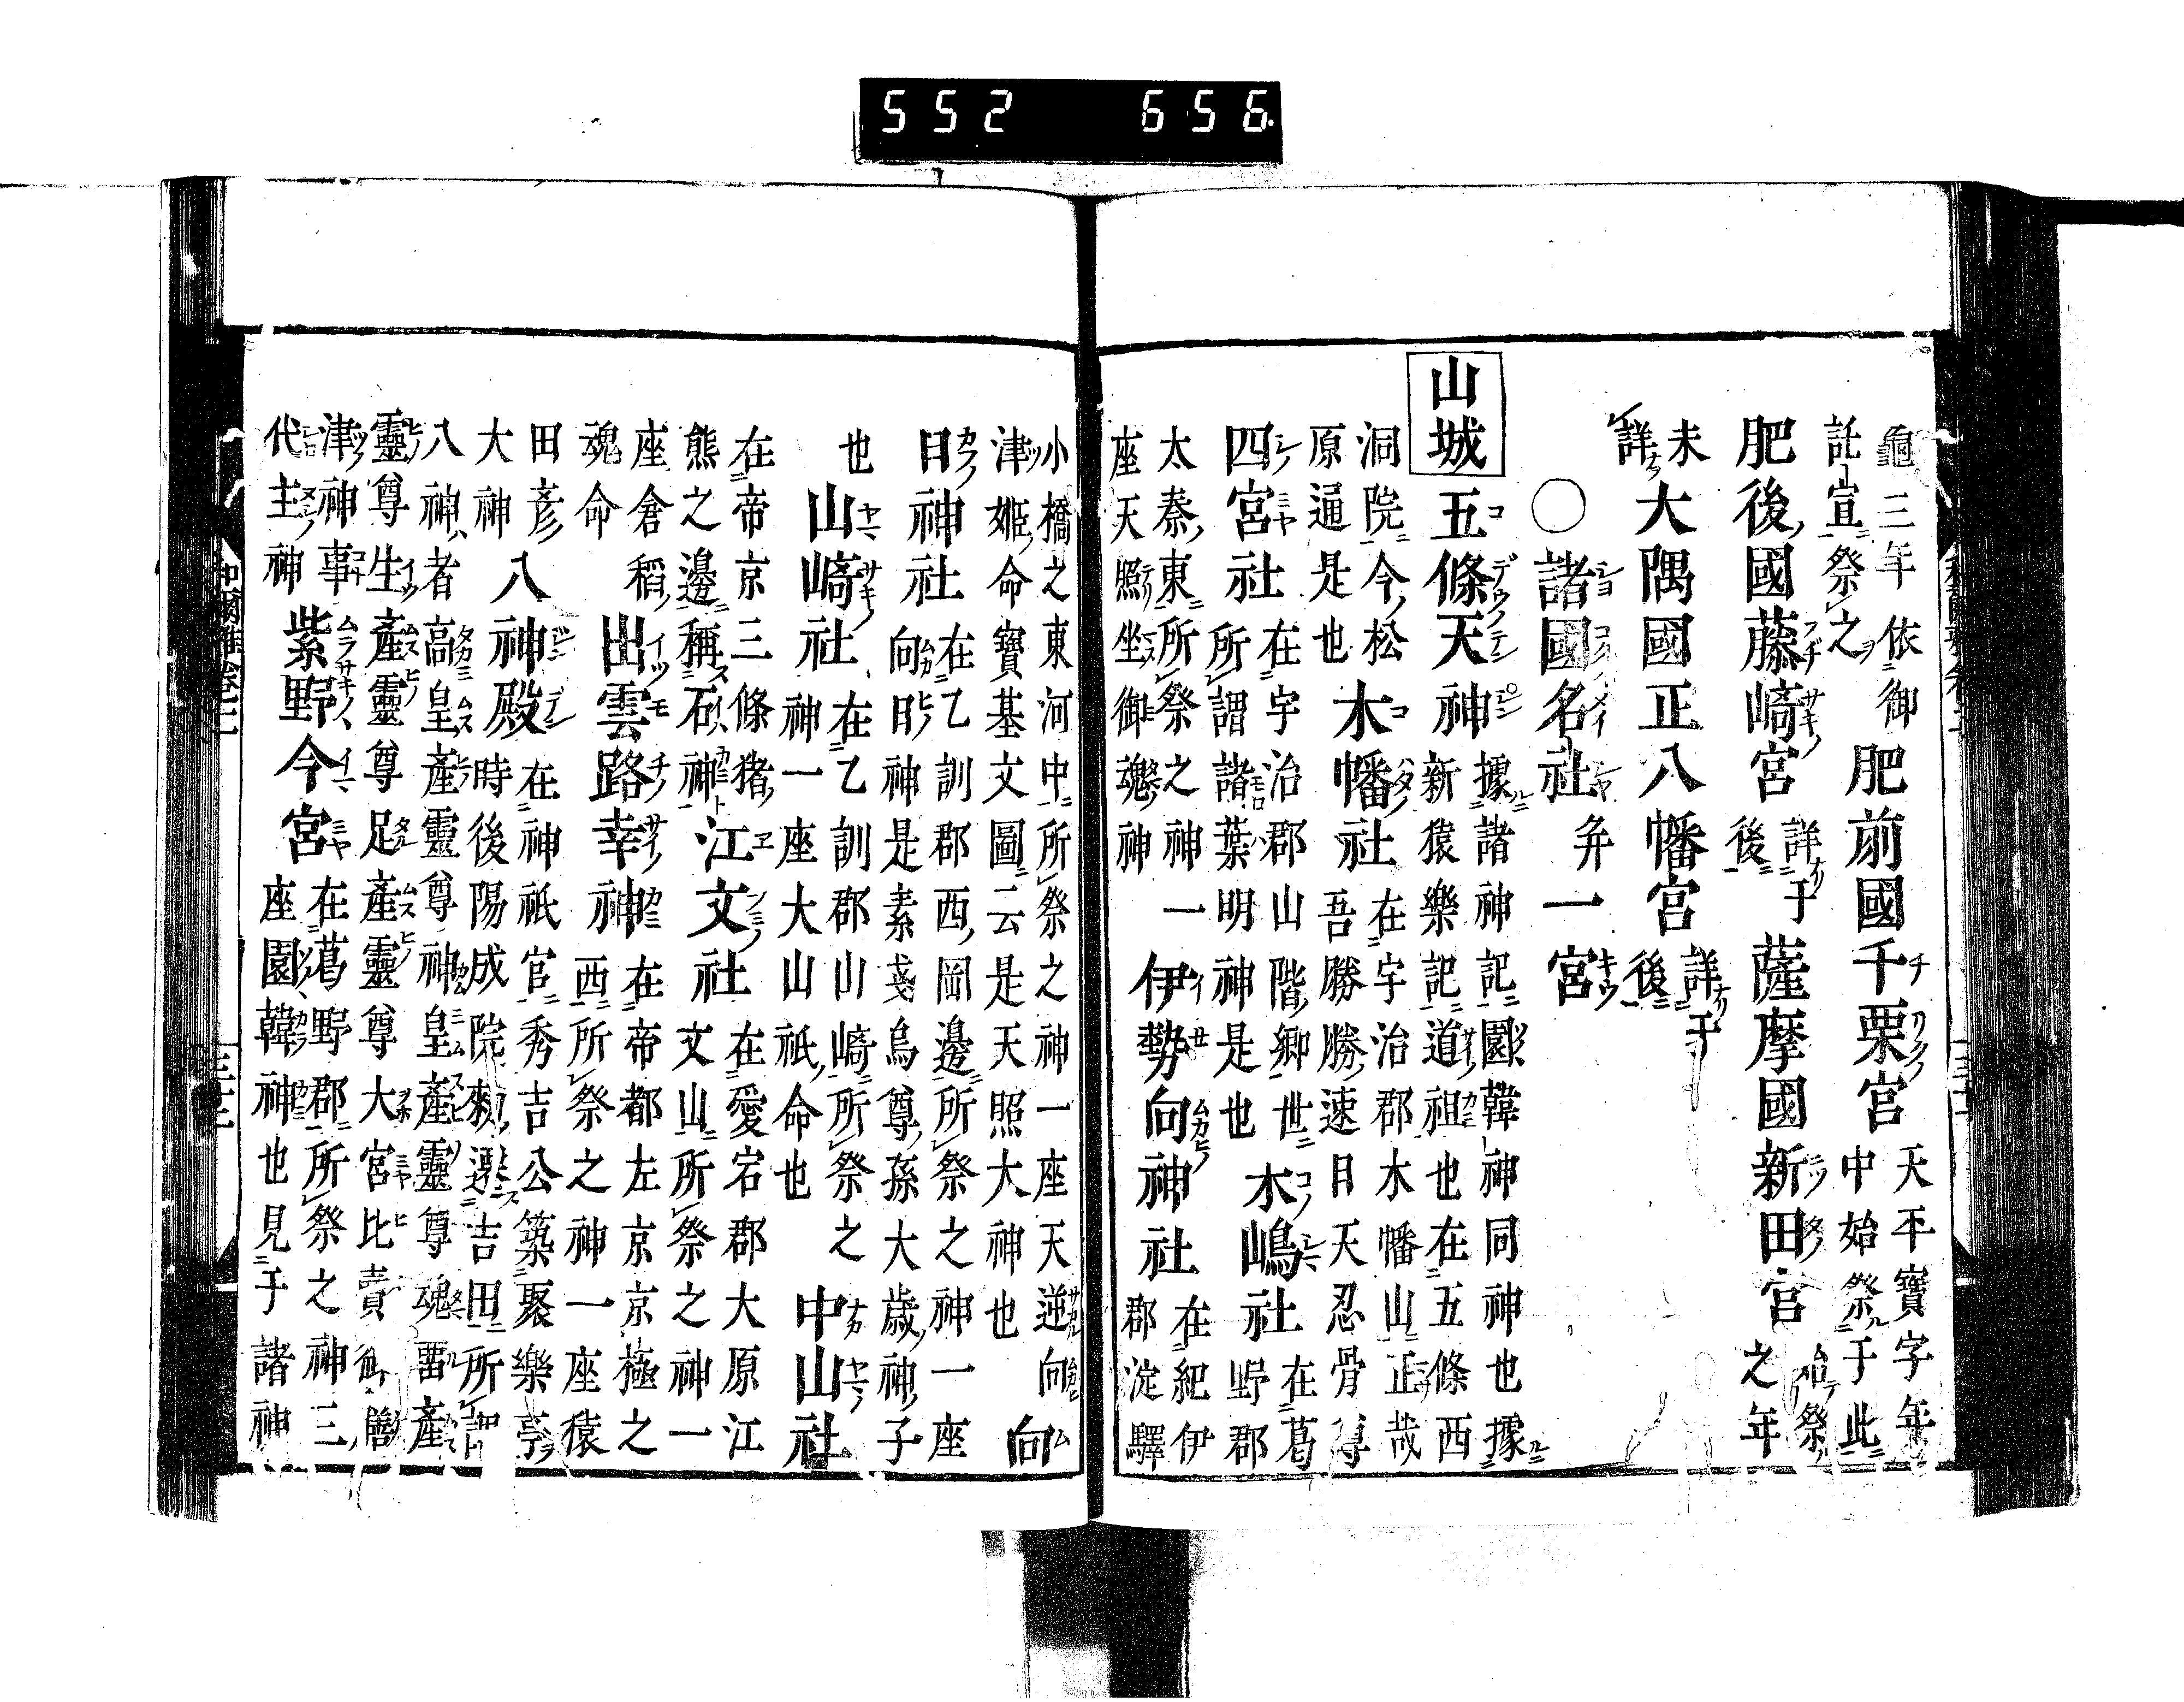 552 656
龜三年依御
託宣祭之
肥前國千栗宮
天平寶字年
中始祭于此
肥後國藤崎宮
詳于
後
薩摩國新田宮
始祭
之年
未
詳
大隅國正八幡宮
詳于
後
○諸國名社
弁一宮
山城
五條天神
據諸神記園韓神同神也據
新猿樂記道祖也在五條西
洞院今松
原通是也
木幡社
在宇治郡木幡山正哉
吾勝勝速日天忍骨尊
四宮社
在宇治郡山階鄉世
所謂諸葉明神是也
木嶋社
在葛
野郡
太秦東所祭之神一
座天照坐御魂神
伊勢向神社
在紀伊
郡淀驛
小橋之東河中所祭之神一座天逆向
津姬命寶基文圖云是天照大神也
向
日神社
在乙訓郡西岡邊所祭之神一座
向日神是素戔烏尊孫大歲神子
也
山崎社
在乙訓郡山崎所祭之
神一座大山祇命也
中山社
在帝京三條猪
熊之邊稱石神
江文社
在愛宕郡大原江
文山所祭之神一
座倉稻
魂命
出雲路幸神
在帝都左京京極之
西所祭之神一座猿
田彥
大神
八神殿
在神祇官秀吉公築聚樂亭
時後陽成院勅選吉田所
八神者高皇產靈尊神皇產靈尊魂畱產
靈尊生產靈尊足產靈尊大宮比賣御膳
津神事
代主神
紫野今宮
在葛野郡所祭之神三
座園韓神也見于諸神